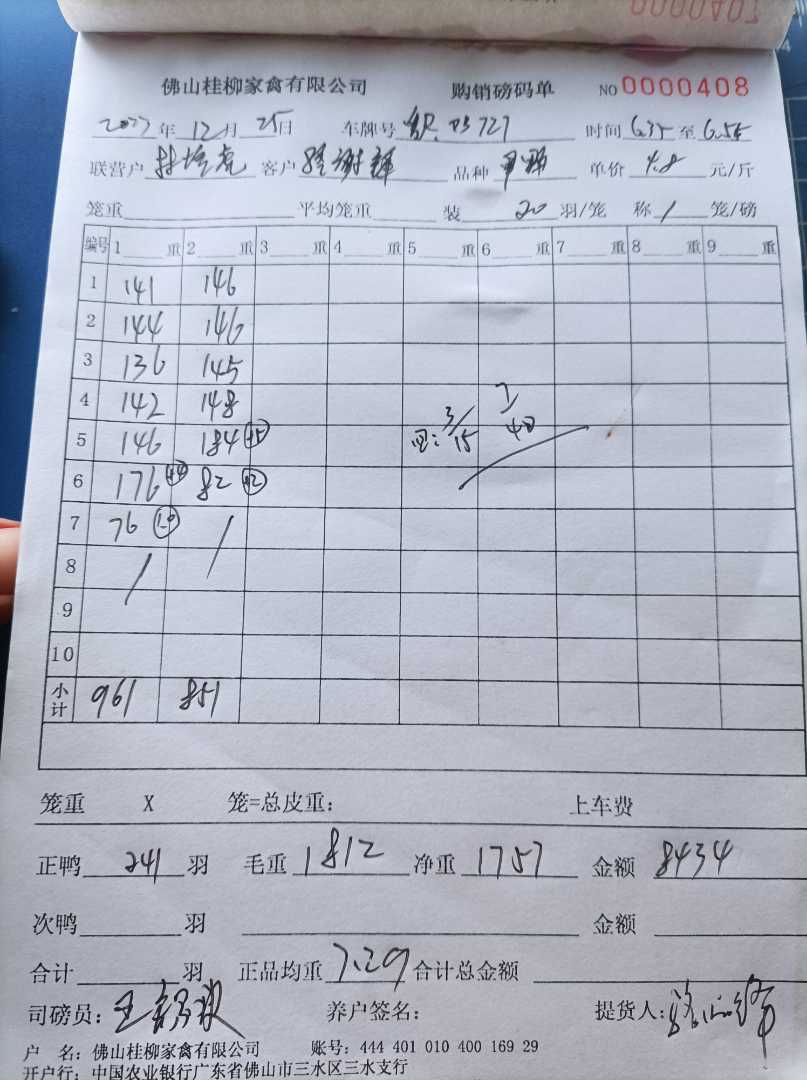 0000407
佛山桂柳家禽有限公司 购销磅码单 NO 0000408
年 12 月 25 日 车牌号 727 时间 6.35 至 6.55
联营户 客户 品种 单价 4.8 元/斤
笼重 平均笼重 装 20 羽/笼 称 1 笼/磅
编号 1 重 2 重 3 重 4 重 5 重 6 重 7 重 8 重 9 重
1 141 146
2 144 146
3 136 145
4 142 148
5 146 184
3/15 40
6 176 82
7 76 /
8 /
9
10
小计 961 851
笼重 X 笼=总皮重: 上车费
正鸭 241 羽 毛重 1812 净重 1757 金额 8434
次鸭 羽 金额
合计 羽 正品均重 7.29 合计总金额
司磅员: 王 养户签名: 提货人:
户 名: 佛山桂柳家禽有限公司 账号: 444 401 010 400 169 29
开户行: 中国农业银行广东省佛山市三水区三水支行